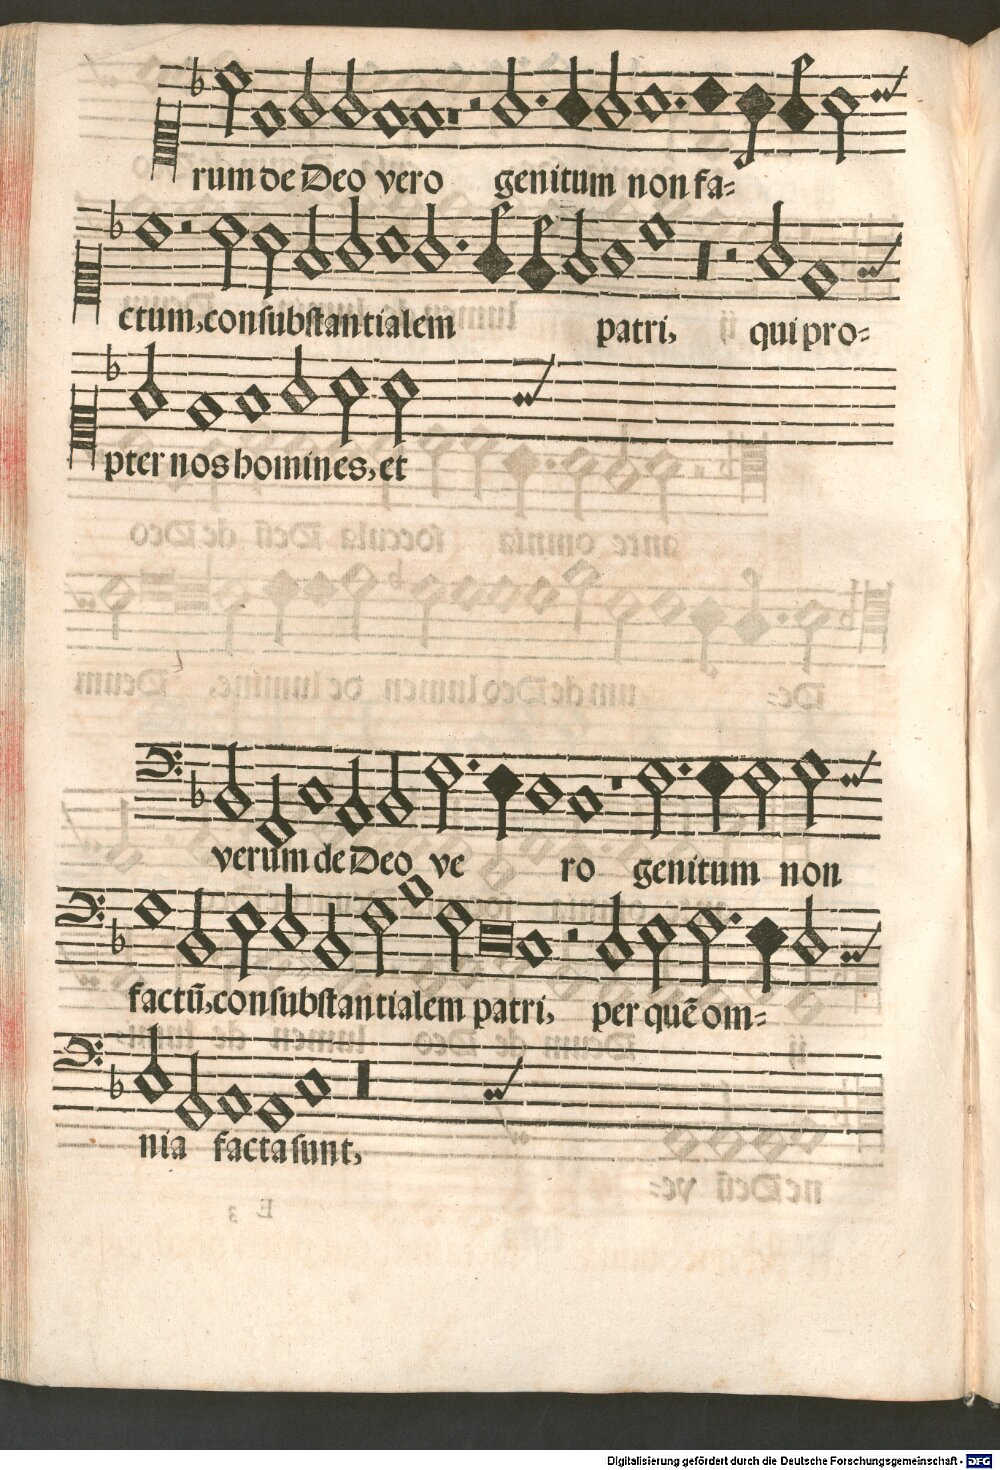 rum de Deo vero genitum non fa-
ctum, consubstantialem patri, qui pro-
pter nos homines, et
verum de Deo ve ro genitum non
factū, consubstantialem patri, per quē om-
nia facta sunt,
Digitalisierung gefördert durch die Deutsche Forschungsgemeinschaft - DFG